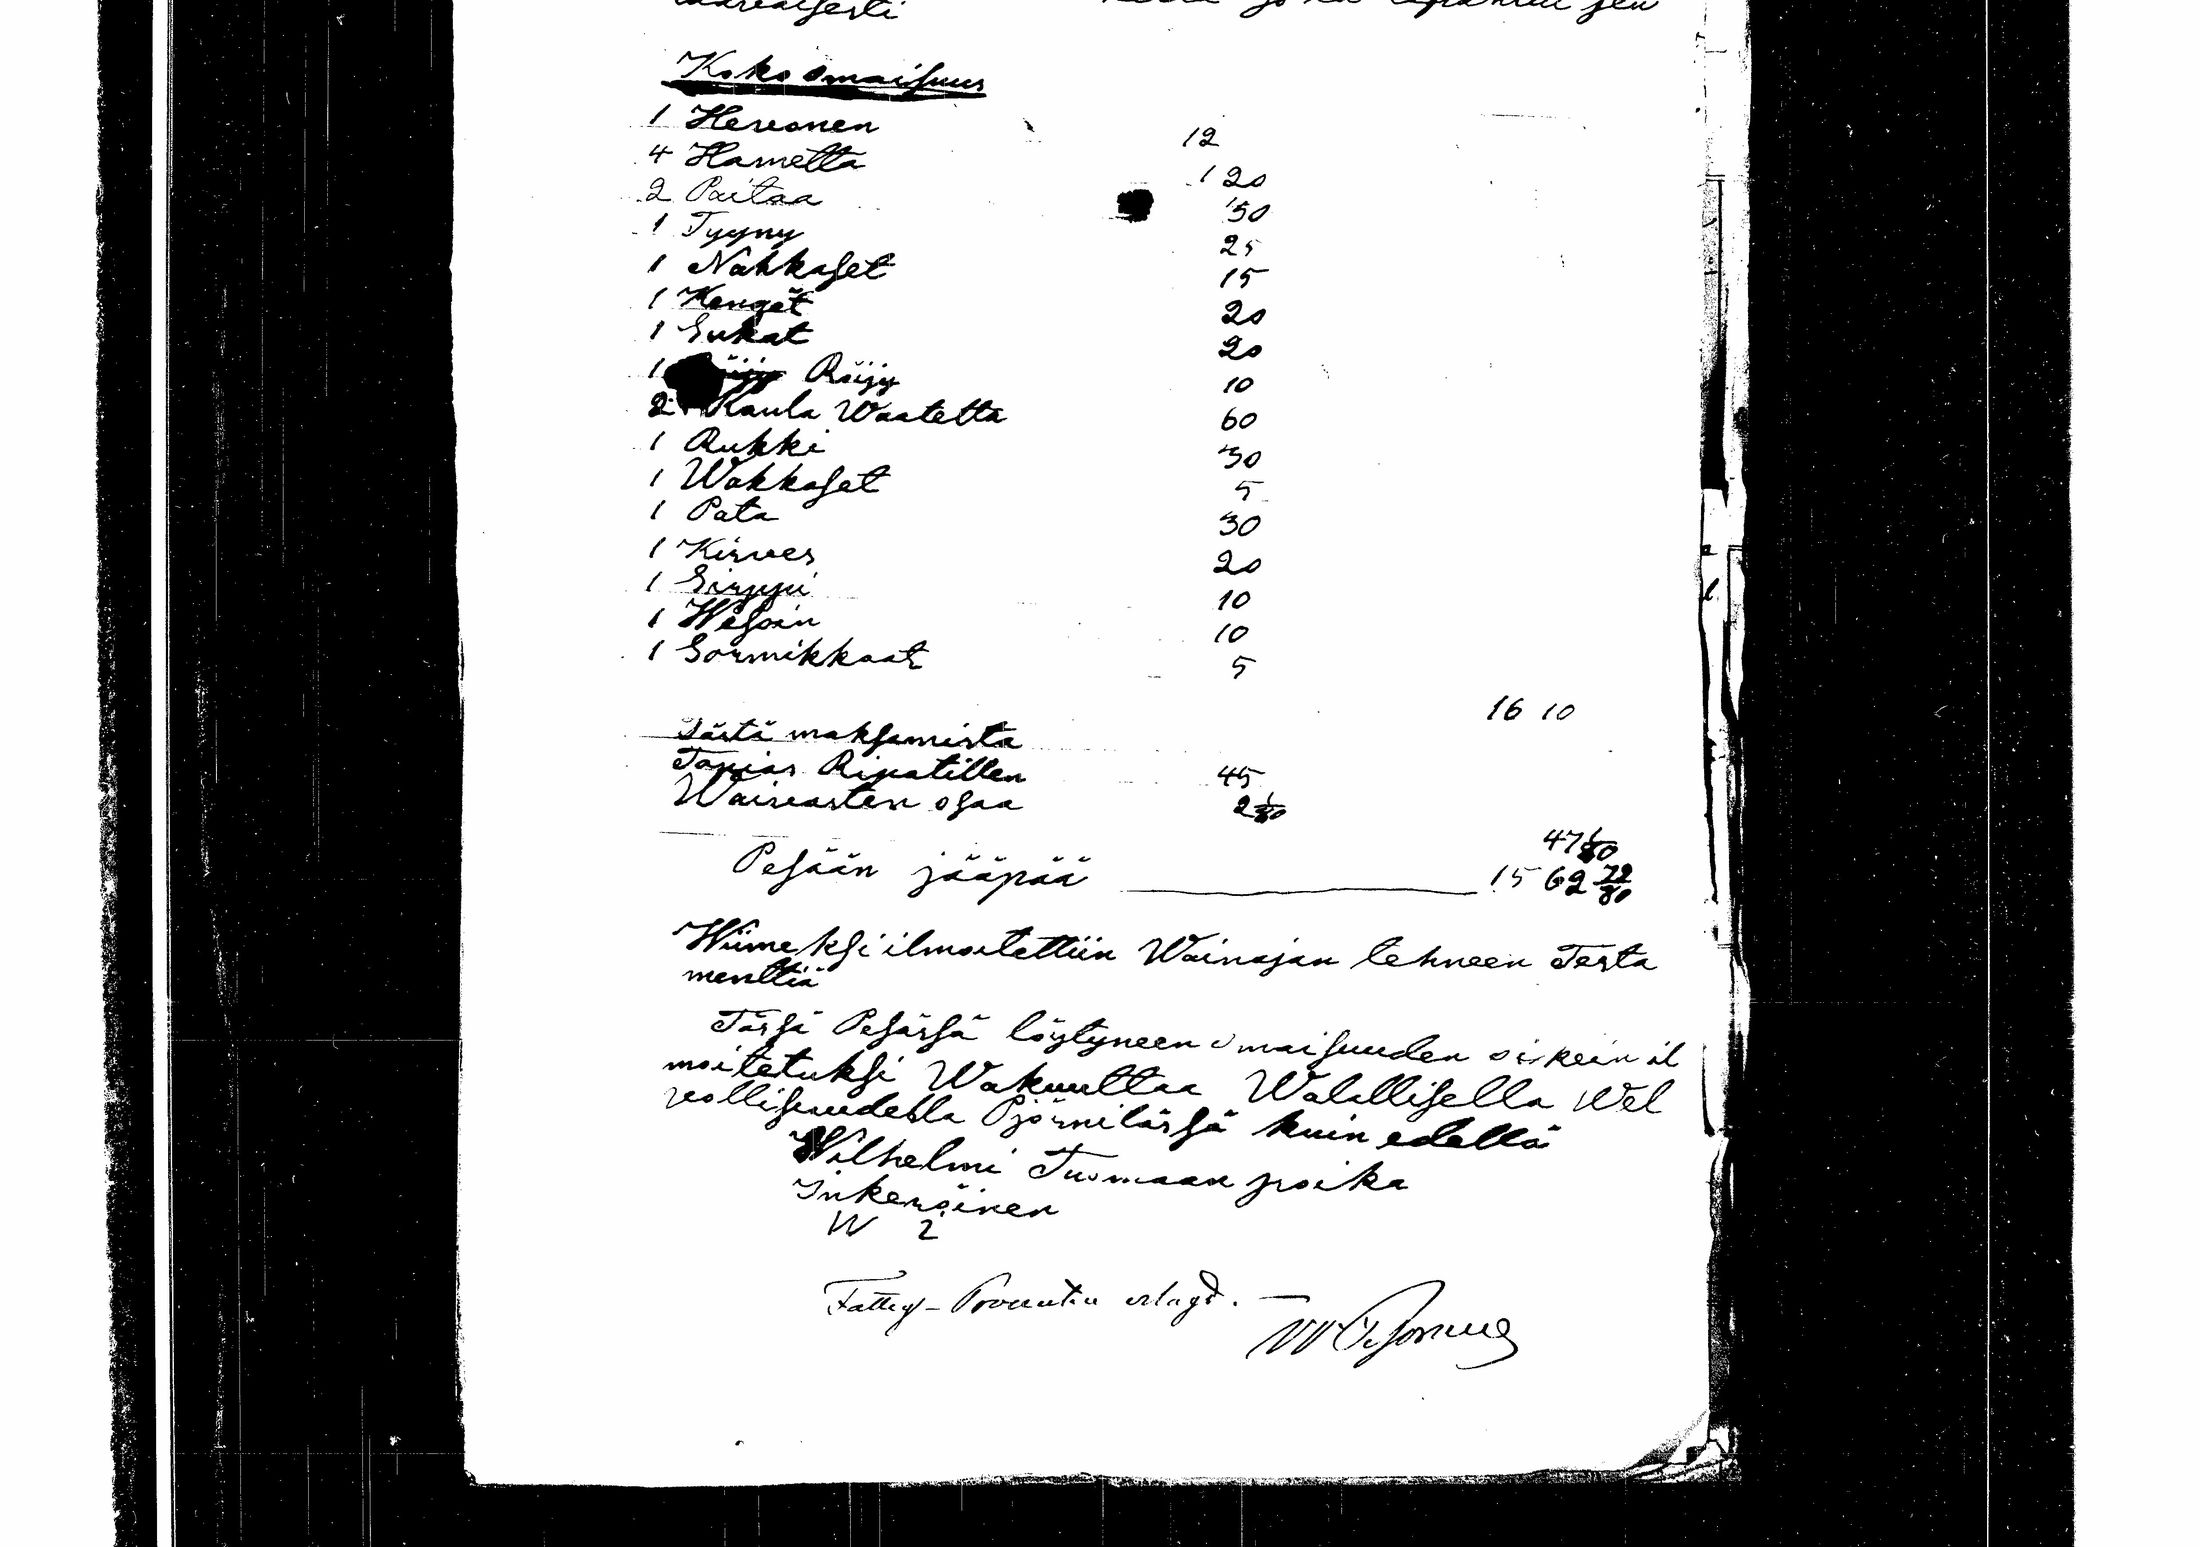 Koko omaisuus
1 Hevonen 12
4 Hametta 1 20
2 Paitaa 50
1 Tyyny 25
1 Nahkaset 15
1 Kengät 20
1 Sukat 20
1 Röijy 10
2 Kaula Waatetta 60
1 Rukki 30
1 Wakkaset 5
1 Pata 30
1 Kirves 20
1 Sirppi 10
1 Wesoin 10
1 Sormikkaat 5
16 10
Tästä maksamista
Topias Ripatillen 45
Waivasten osaa 2 1/80
47 1/80
Pesään jääpää 15 62 79/80
Wiimeksi ilmoitettiin Wainajan tehneen Testa
menttiä
Tässä Pesässä löytyneen omaisuuden oikein il
moitetuksi Wakuuttaa Walallisella Wel
vollisuudella Pjörnilässä kuin edellä
Wilhelmi Tuomaan poika
Inkeröinen
W I
Fattig-Procenten erlagd.